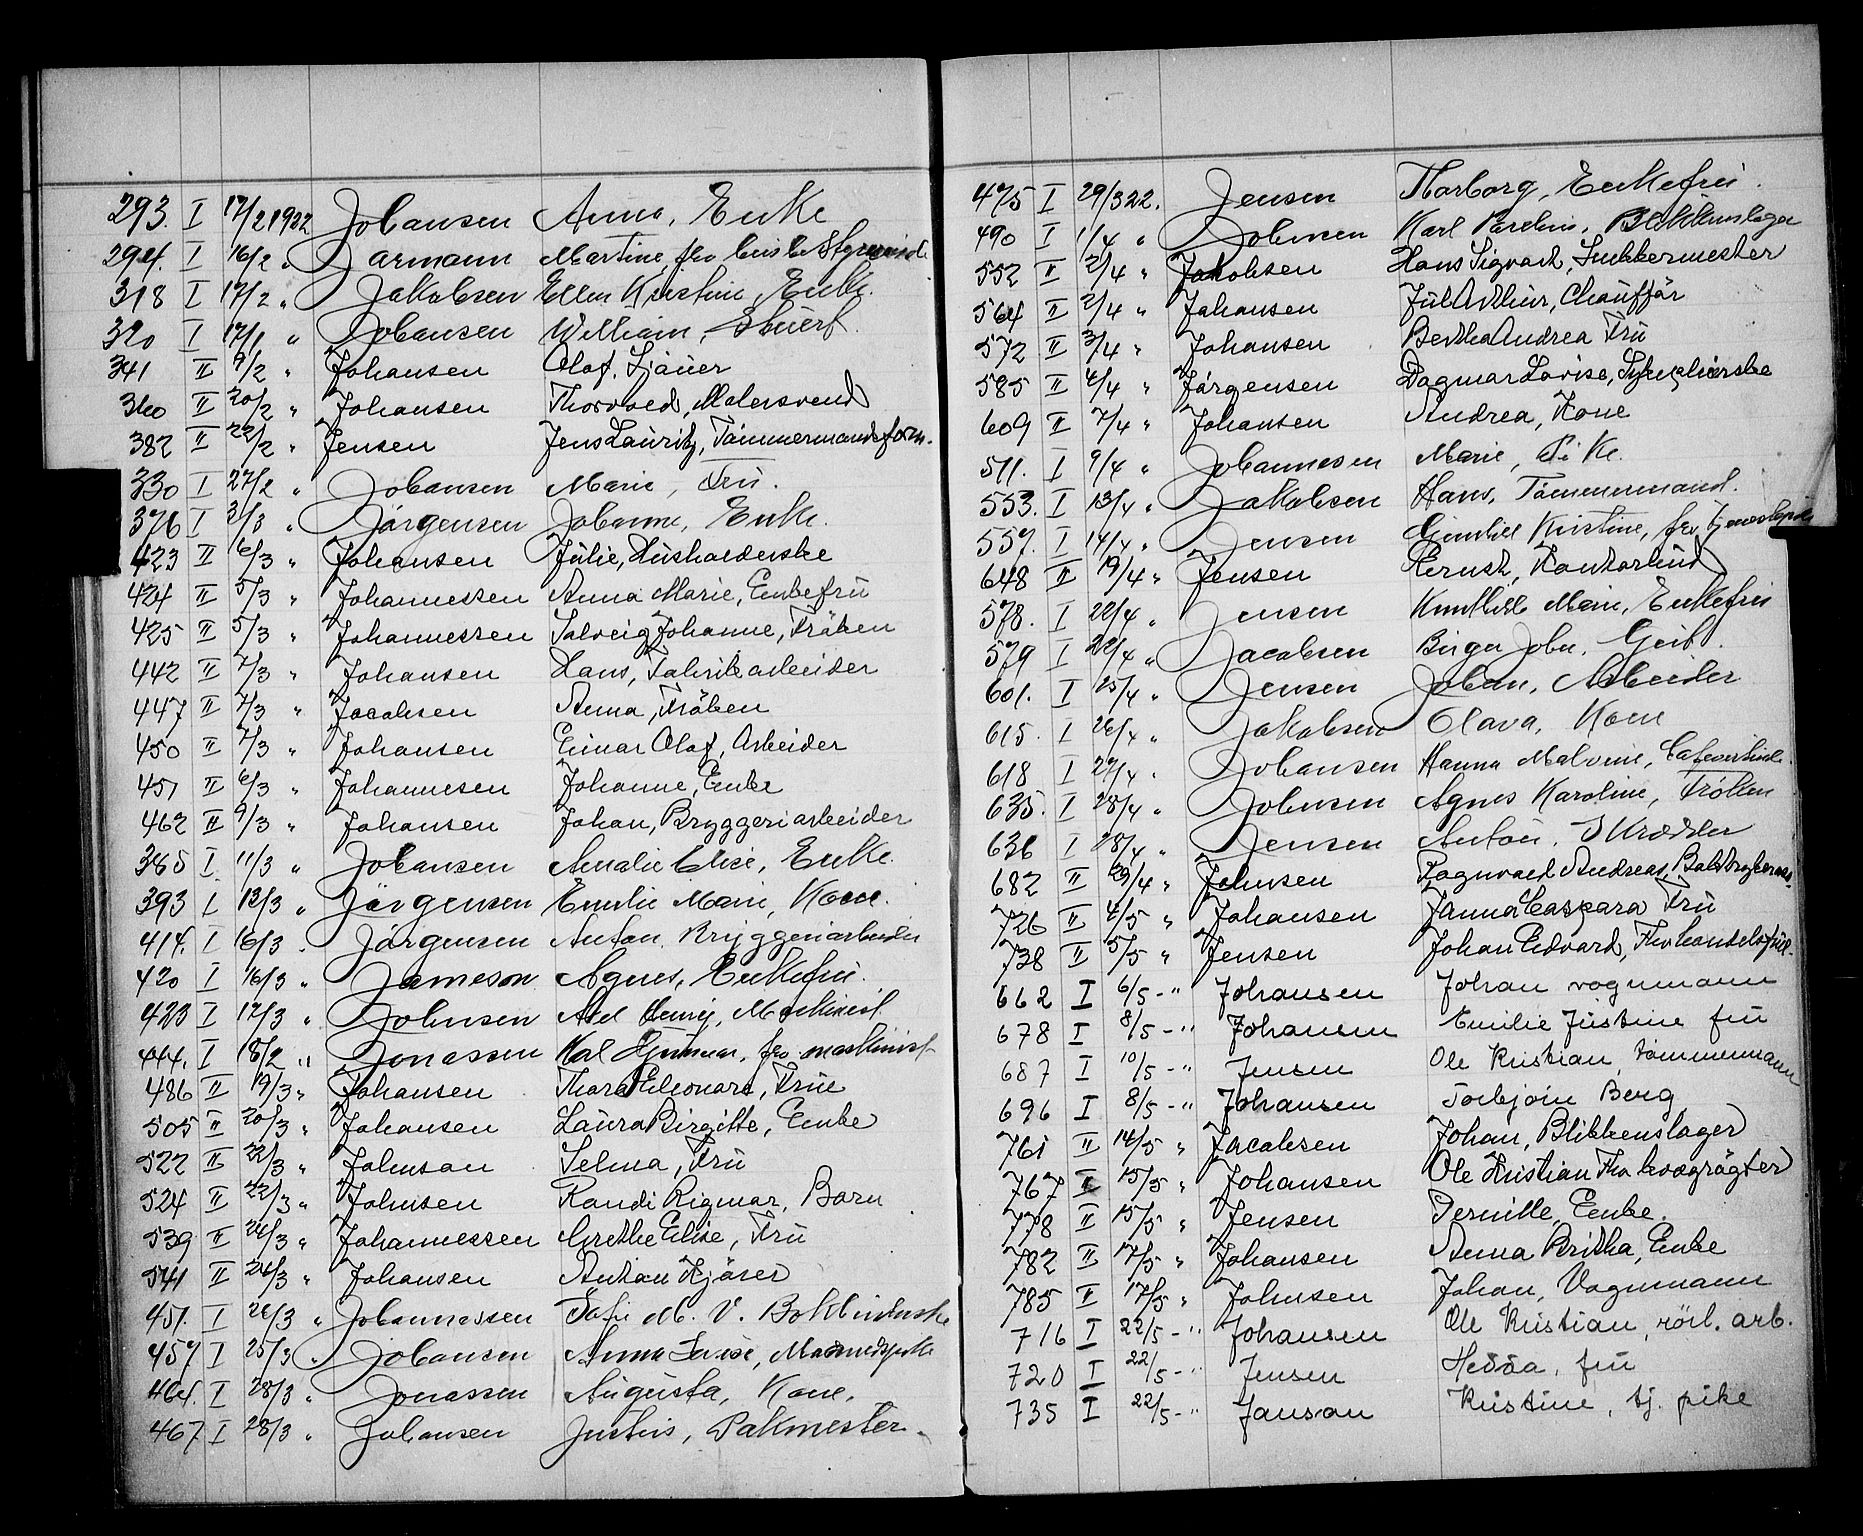 293. I 17/2 1922 Johansen Anna, Enke
294. I 16/2 " Jarmann Martine, fhv.
318 I 17/2 " Jakobsen Ellen Kristine, Enke.
320 I 17/1 " Johansen William, Stuert.
341 II 9/2 " Johansen Olaf, Sjauer
360 II 20/2 " Johansen Thorvald, Malersvend
382 II 22/2 " Jensen Jens Lauritz, Tömmermandsform.
330 I 27/2 " Johansen Marie, Fru.
376 I 2/3 " Jörgensen Johanne, Enke.
423 II 6/3 " Johansen Julie, Husholderske
424 II 5/3 " Johannessen Anna Marie, Enkefru
425 II 5/3 " Johannessen Solveig Johanne, Fröken
442 II 7/3 " Johansen Hans, Fabrikarbeider
447 II 7/3 " Jacobsen Anna, Fröken
450 II 7/3 " Johansen Einar Olaf, Arbeider
451 II 6/3 " Johannesen Johanne, Enke
462 II 9/3 " Johansen Johan, Bryggeriarbeider
385 I 11/3 " Johansen Amalie Elise, Enke.
393 I 12/3 " Jörgensen Emilie Marie, Kone.
414. I 16/3 " Jörgensen Anton, Bryggeriarbeider
420 I 16/3 " Jameson Agnes, Enkefru.
423 I 17/3 " Johnsen Axel Henry, Maskinist
444. I 18/2 " Jonassen Karl Hjalmar, fhv. maskinist
486 II 19/3 " Johansen Thora Eleonora, Frue
505 II 20/3 " Johansen Laura Birgitte, Enke
522 II 22/3 " Johnson Selma, Fru
524 II 22/3 " Johnsen Randi Rigmor, Barn
539 II 26/3 " Johannessen Grethe Elise, Fru
541 II 24/3 " Johansen Anton Kjörer
451. I 26/3 " Johannessen Sofie M. V. Bokbinderske
457 I 25/3 " Johansen Anna Lovise,
464. I 28/3 " Jonassen Augusta, Kone.
467 I 28/3 " Johansen Justus, Pakmester.
475 I 29/3 22. Jensen Thorborg, Enkefru.
490 I 1/4 " Johnsen Karl Blikkenslager
552 II 2/4 " Jakobsen Hans Sigvart, Snekkermester
564 II 2/4 " Johansen Jul Arthur, Chaufför
572 II 3/4 " Johansen Bertha Andrea Fru
585 II 4/4 " Jörgensen Dagmar Lovise,
609 II 7/4 " Johansen Andrea, Kone
511. I 9/4 " Johannesen Marie, Pike.
553. I 13/4 " Jakobsen Hans, Tömmermand.
557. I 14/4 " Jensen Gunhild Kristine, fhv tjenestepike
648 II 19/4 " Jensen Bernt, Kontorbud
578. I 22/4 " Jensen Marie, Enkefru
579 I 22/4 " Jacobsen Birger John,
601. I 25/4 " Jensen Johan, Arbeider
615. I 26/4 " Jakobsen Olava, Kone
618 I 27/4 " Johansen Hanna Malvine, Cafevertinde
635. I 28/4 " Johnsen Agnes Karoline, Fröken
636 I 28/4 " Jensen Anton, Skrædder
682 II 29/4 " Johnsen Ragnvald Andreas,
726 II 4/5 " Johansen Janna Caspara Fru
738 II 5/5 " Jensen Johan Edvard, Fhv handelsful.
662 I 6/5 -" Johansen Johan vognmann
678 I 8/5 -" Johansen Emilie Justine fru
687 I 10/5 -" Jensen Ole Kristian, tömmermann
696 I 8/5 -" Johansen Torbjörn Berg
761 II 14/5 " Jacobsen Johan, Blikkenslager
767 II 15/5 " Johansen Ole Kristian Fhv kvægrögter
778 II 15/5 " Jensen Pernille, Enke.
782 II 17/5 " Johansen Anna Britha, Enke
785 II 17/5 " Johnsen Johan, Vognmann
716 I 22/5 -" Johansen Ole Kristian, rörl. arb.
720 I 22/5 -" Jensen Hedda, fru
735 I 22/5 -" Janson Kristine, tj. pike